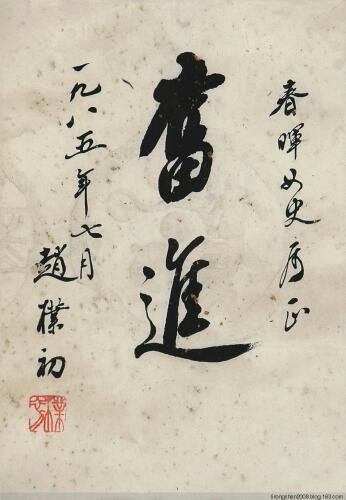 春暉女史屬正
奮進
一九八五年七月
趙樸初
樸初
lirongshan2008.blog.163.com